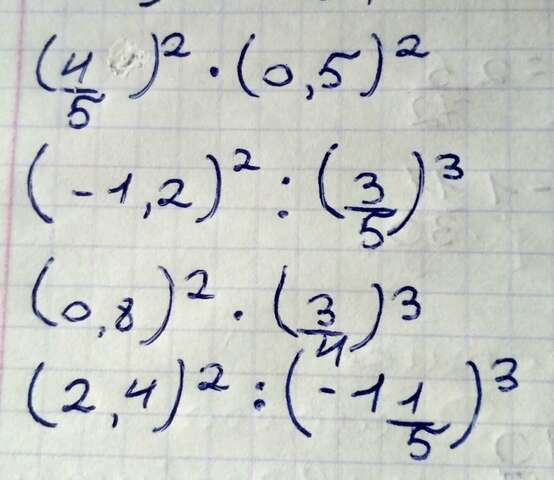 (4/5)² · (0,5)²
(-1,2)² : (3/5)³
(0,8)² · (3/4)³
(2,4)² : (-1 1/5)³